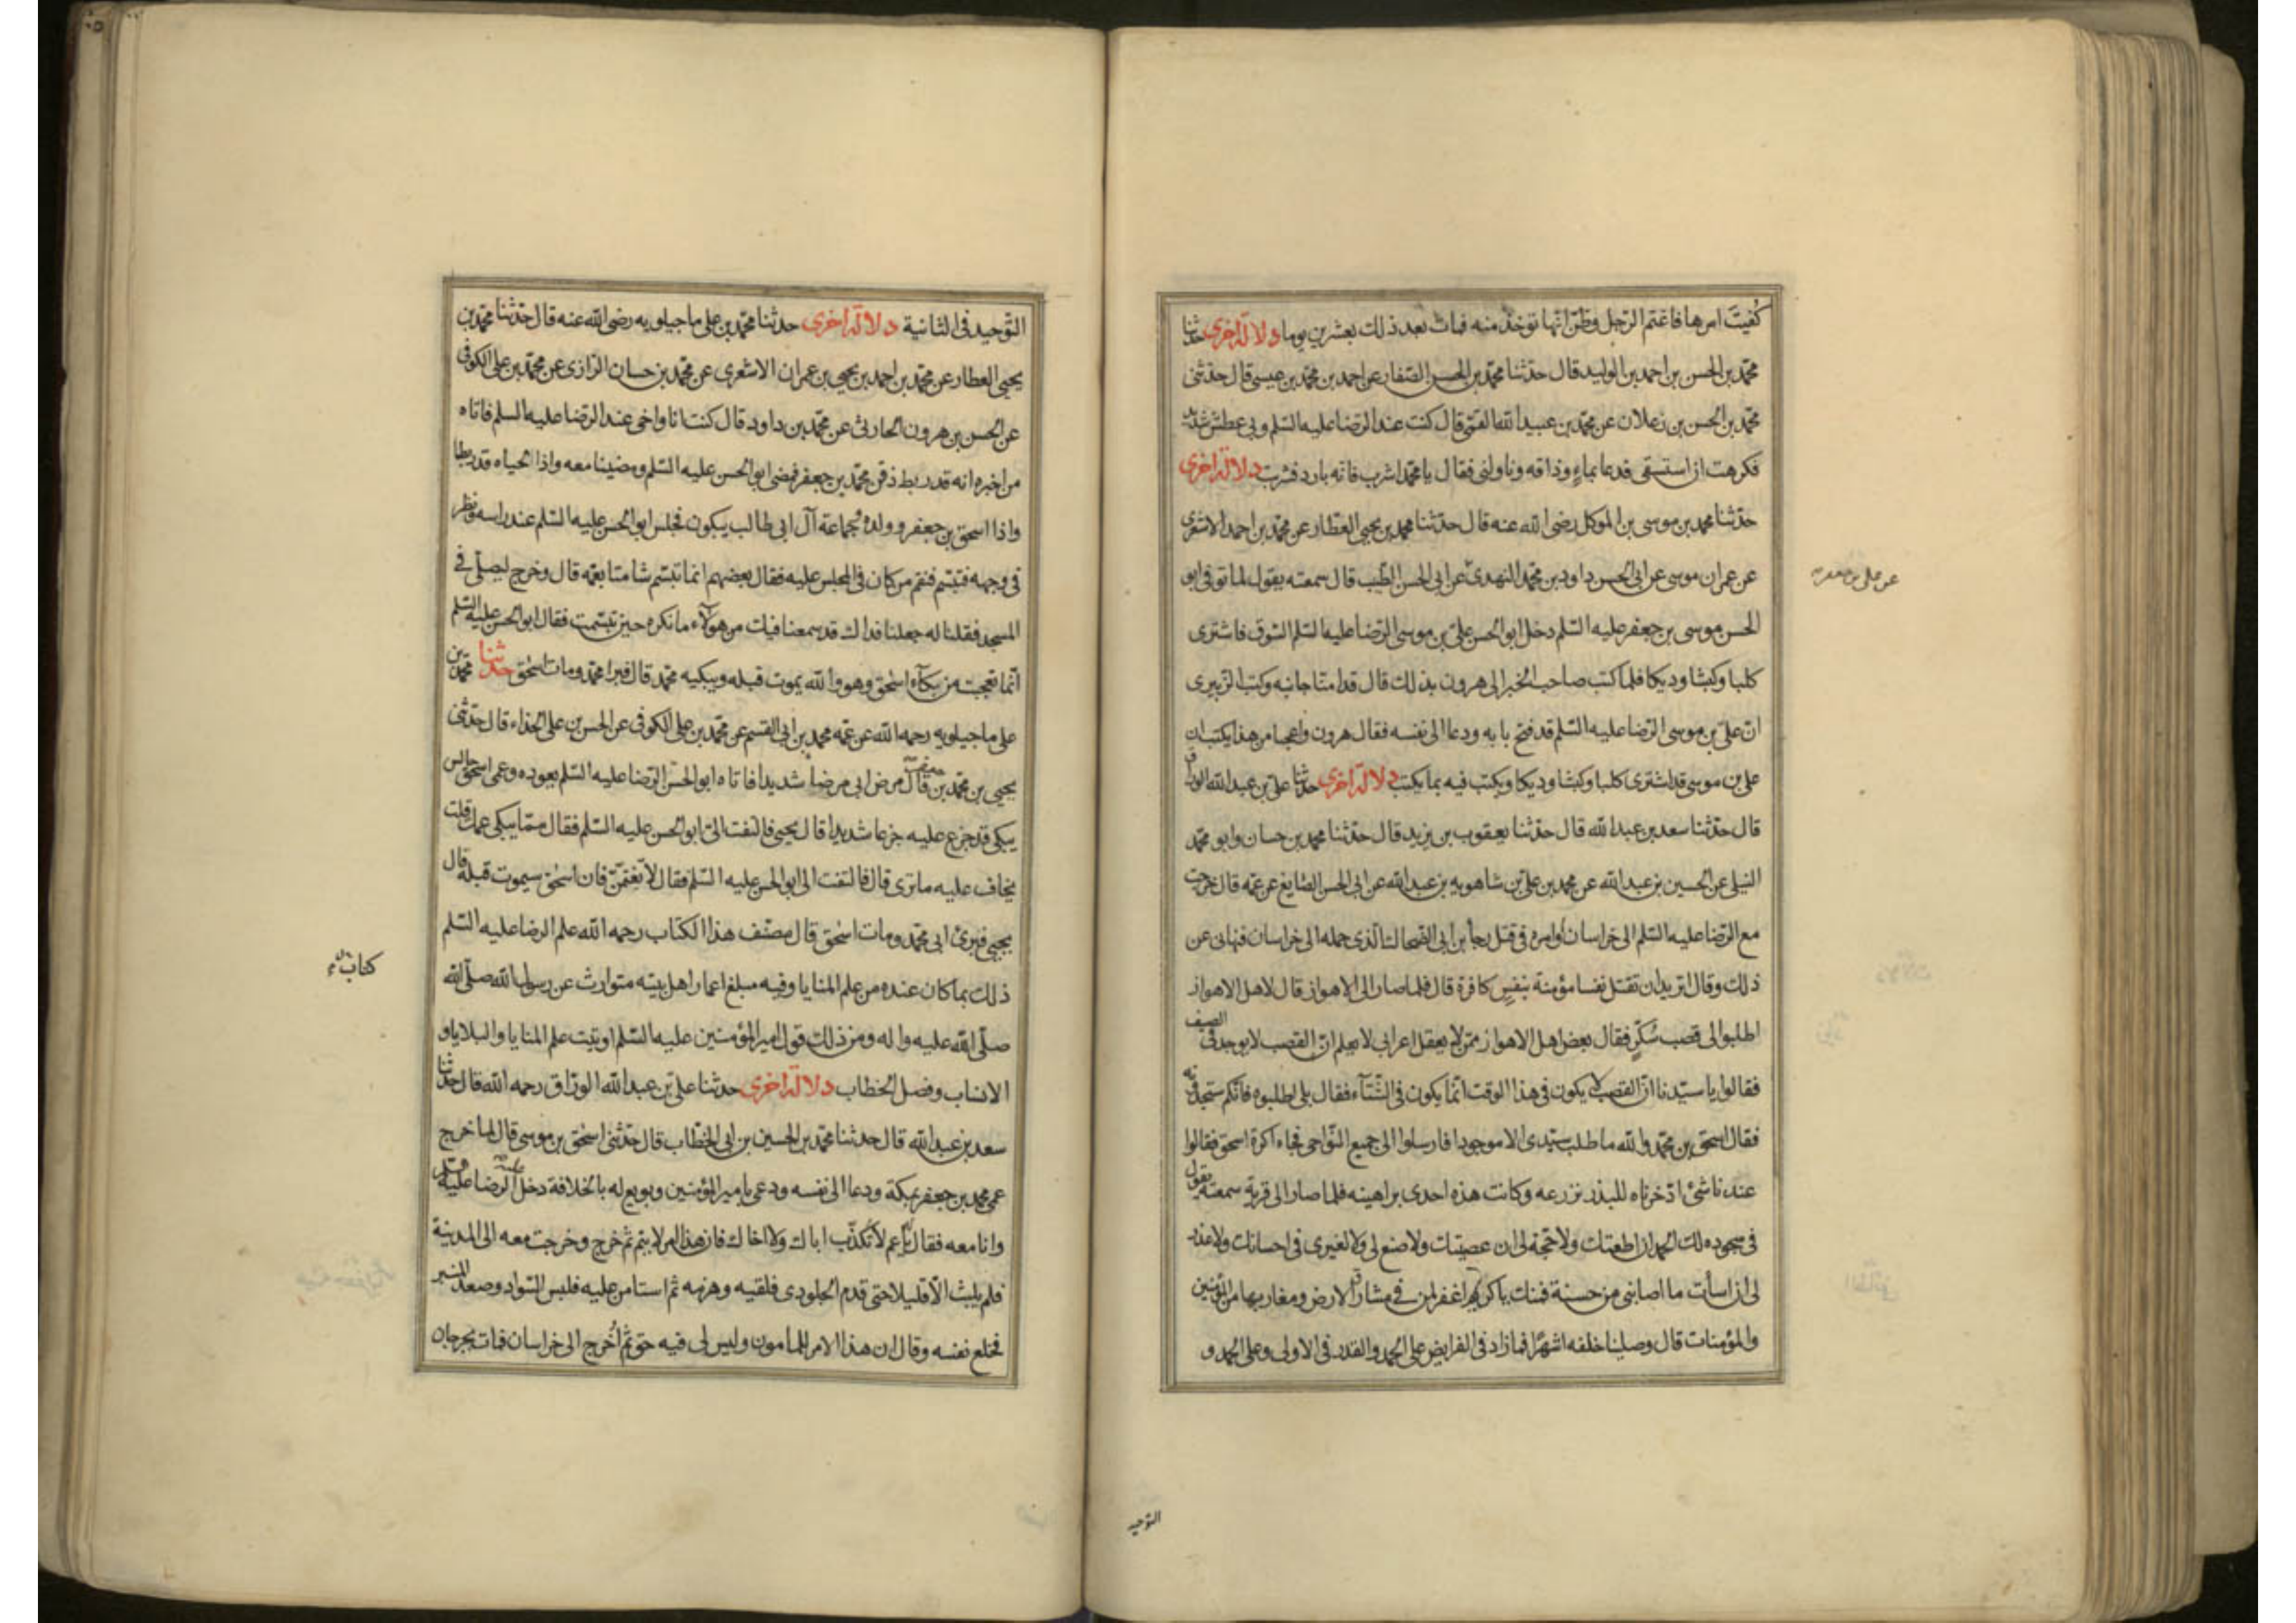 كفيت امرها فاغتم الرجل وظن انها توخذ منه فمات بعد ذلك بعشرين يوما دلالة اخرى حدثنا
محمد بن الحسن بن احمد بن الوليد قال حدثنا محمد بن الحسن الصفار عن احمد بن محمد بن عيسى قال حدثنى
محمد بن الحسن بن زعلان عن محمد بن عبيد الله القمى قال كنت عند الرضا عليه السلم وبى عطش شديد
فكرهت ان استسقى فدعا بماء وذاقه وناولنى فقال يا محمد اشرب فانه بارد فشربت دلالة اخرى
حدثنا محمد بن موسى بن الموكل رضى الله عنه قال حدثنا محمد بن يحيى العطار عن محمد بن احمد الاشعرى
عن عمران موسى عن ابى الحسن داود بن محمد النهدى عن ابى الحسن الطيب قال سمعته يقول لما توفى ابو
الحسن موسى بن جعفر عليه السلم دخل ابو الحسن على بن موسى الرضا عليه السلم السوق فاشترى
كلبا وكبشا وديكا فلما كتب صاحب الخبر الى هرون بذلك قال قد امنا جانبه وكتب الزبيرى
ان على بن موسى الرضا عليه السلم قد فتح بابه ودعا الى نفسه فقال هرون واعجبا من هذا يكتب ان
على بن موسى قد اشترى كلبا وكبشا وديكا ويكتب فيه بما يكتب دلالة اخرى حدثنا على بن عبد الله الوراق
قال حدثنا سعد بن عبد الله قال حدثنا يعقوب بن يزيد قال حدثنا محمد بن حسان وابو محمد
النيلى عن الحسين بن عبد الله عن محمد بن على بن شاهويه بن عبد الله عن ابى الحسن الصايغ عن عمه قال خرجت
مع الرضا عليه السلم الى خراسان أوامره فى قتل رجا بن ابى الضحاك الذى حمله الى خراسان فنهانى عن
ذلك وقال اتريد ان تقتل نفسا مؤمنة بنفس كافرة قال فلما صار الى الاهواز قال لاهل الاهواز
اطلبوا لى قصب سكر فقال بعض اهل الاهواز ممن لا يعقل اعرابى لا يعلم ان القصب لا يوجد فى الصيف
فقالوا يا سيدنا ان القصب لا يكون فى هذا الوقت انما يكون فى الشتاء فقال بلى اطلبوه فانكم ستجدونه
فقال اسحق بن محمد والله ما طلب سيدى الا موجودا فارسلوا الى جميع النواحى فجاء اكرة اسحق فقالوا
عندنا شئ ادخرناه للبذر نزرعه وكانت هذه احدى براهينه فلما صار الى قرية سمعته يقول
فى سجوده لك الحمد ان اطعتك ولا حجة لى ان عصيتك ولا صنع لى ولا لغيرى فى احسانك ولا عذر
لى ان اسأت ما اصابنى من حسنة فمنك يا كريم اغفر لمن فى مشارق الارض ومغاربها من المؤمنين
والمؤمنات قال وصلينا خلفه اشهرا فما زاد فى الفرايض على الحمد والقدر فى الاولى وعلى الحمد و
التوحيد
التوحيد فى الثانية دلالة اخرى حدثنا محمد بن على ماجيلويه رضى الله عنه قال حدثنا محمد بن
يحيى العطار عن محمد بن احمد بن يحيى بن عمران الاشعرى عن محمد بن حسان الرازى عن محمد بن على الكوفى
عن الحسن بن هرون الحارثى عن محمد بن داود قال كنت انا واخى عند الرضا عليه السلم فاتاه
من اخبره انه قد ربط ذقن محمد بن جعفر فمضى ابو الحسن عليه السلم ومضينا معه واذا لحياه قد ربطا
واذا اسحق بن جعفر وولده وجماعة آل ابى طالب يبكون فجلس ابو الحسن عليه السلم عند راسه ونظر
فى وجهه فتبسم فنقم من كان فى المجلس عليه فقال بعضهم انما تبسم شامتا بعمه قال وخرج ليصلى فى
المسجد فقلنا له جعلنا فداك قد سمعنا فيك من هولاء ما نكره حين تبسمت فقال ابو الحسن عليه السلم
انما تعجبت من بكاء اسحق وهو والله يموت قبله ويبكيه محمد قال فبرا محمد ومات اسحق حدثنا محمد بن
على ماجيلويه رحمه الله عن عمه محمد بن ابى القسم عن محمد بن على الكوفى عن الحسن بن على الحذاء قال حدثنى
يحيى بن محمد بن جعفر قال مرض ابى مرضا شديدا فاتاه ابو الحسن الرضا عليه السلم يعوده وعمى اسحق جالس
يبكى قد جزع عليه جزعا شديدا قال يحيى فالتفت الى ابو الحسن عليه السلم فقال مما يبكى عمك قلت
يخاف عليه ما ترى قال فالتفت الى ابو الحسن عليه السلم فقال لا تغتمن فان اسحق سيموت قبله قال
يحيى فبرئ ابى محمد ومات اسحق قال مصنف هذا الكتاب رحمه الله علم الرضا عليه السلم
ذلك بما كان عنده من علم المنايا وفيه مبلغ اعمار اهل بيته متوارث عن رسول الله صلى الله
صلى الله عليه واله ومن ذلك قول امير المؤمنين عليه السلم اوتيت علم المنايا والبلايا و
الانساب وفصل الخطاب دلالة اخرى حدثنا على بن عبد الله الوراق رحمه الله قال حدثنا
سعد بن عبد الله قال حدثنا محمد بن الحسين بن ابى الخطاب قال حدثنى اسحق بن موسى قال لما خرج
عمى محمد بن جعفر بمكة ودعا الى نفسه ودعى بامير المؤمنين وبويع له بالخلافة دخل عليه الرضا عليه السلم
وانا معه فقال يا عم لا تكذب اباك ولا اخاك فان هذا الامر لا يتم ثم خرج وخرجت معه الى المدينة
فلم يلبث الا قليلا حتى قدم الجلودى فلقيه وهزمه ثم استامن عليه فلبس السواد وصعد المنبر
فخلع نفسه وقال ان هذا الامر للمامون وليس لى فيه حق ثم أخرج الى خراسان فمات بجرجان